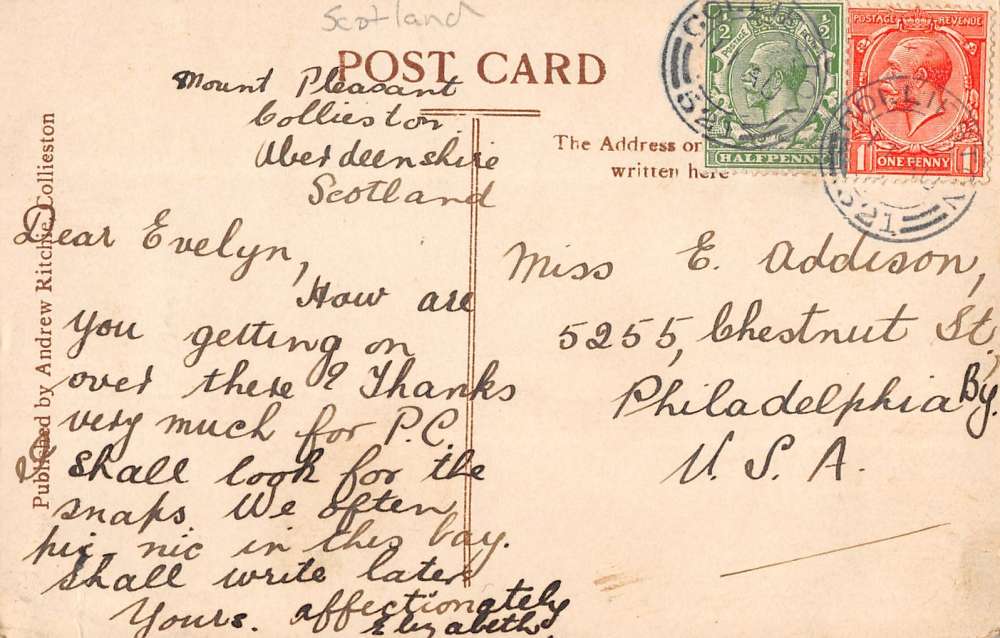 Scotland
POST CARD
Mount Pleasant
Collieston
Aberdeenshire
Scotland
Dear Evelyn,
How are
you getting on
over there? Thanks
very much for P.C.
shall look for the
snaps. We often
pic-nic in this bay.
shall write later
Yours. affectionately
Elizabeth.
Published by Andrew Ritchie, Collieston
The Address or
written here
½ ½
POSTAGE
HALFPENNY
POSTAGE REVENUE
1 ONE PENNY 1
521
521
Miss E. Addison,
5255, Chestnut St,
Philadelphia
U. S. A.